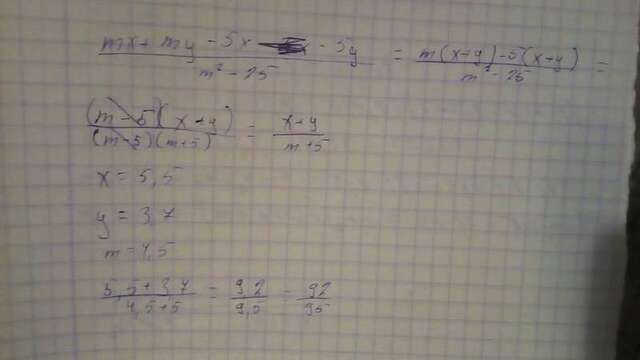 (mx + my - 5x - 5y)/(m² - 25) = (m(x+y) - 5(x+y))/(m² - 25) =
((m-5)(x+y))/((m-5)(m+5)) = (x+y)/(m+5)
x = 5,5
y = 3,7
m = 4,5
(5,5 + 3,7)/(4,5 + 5) = 9,2/9,5 = 92/95